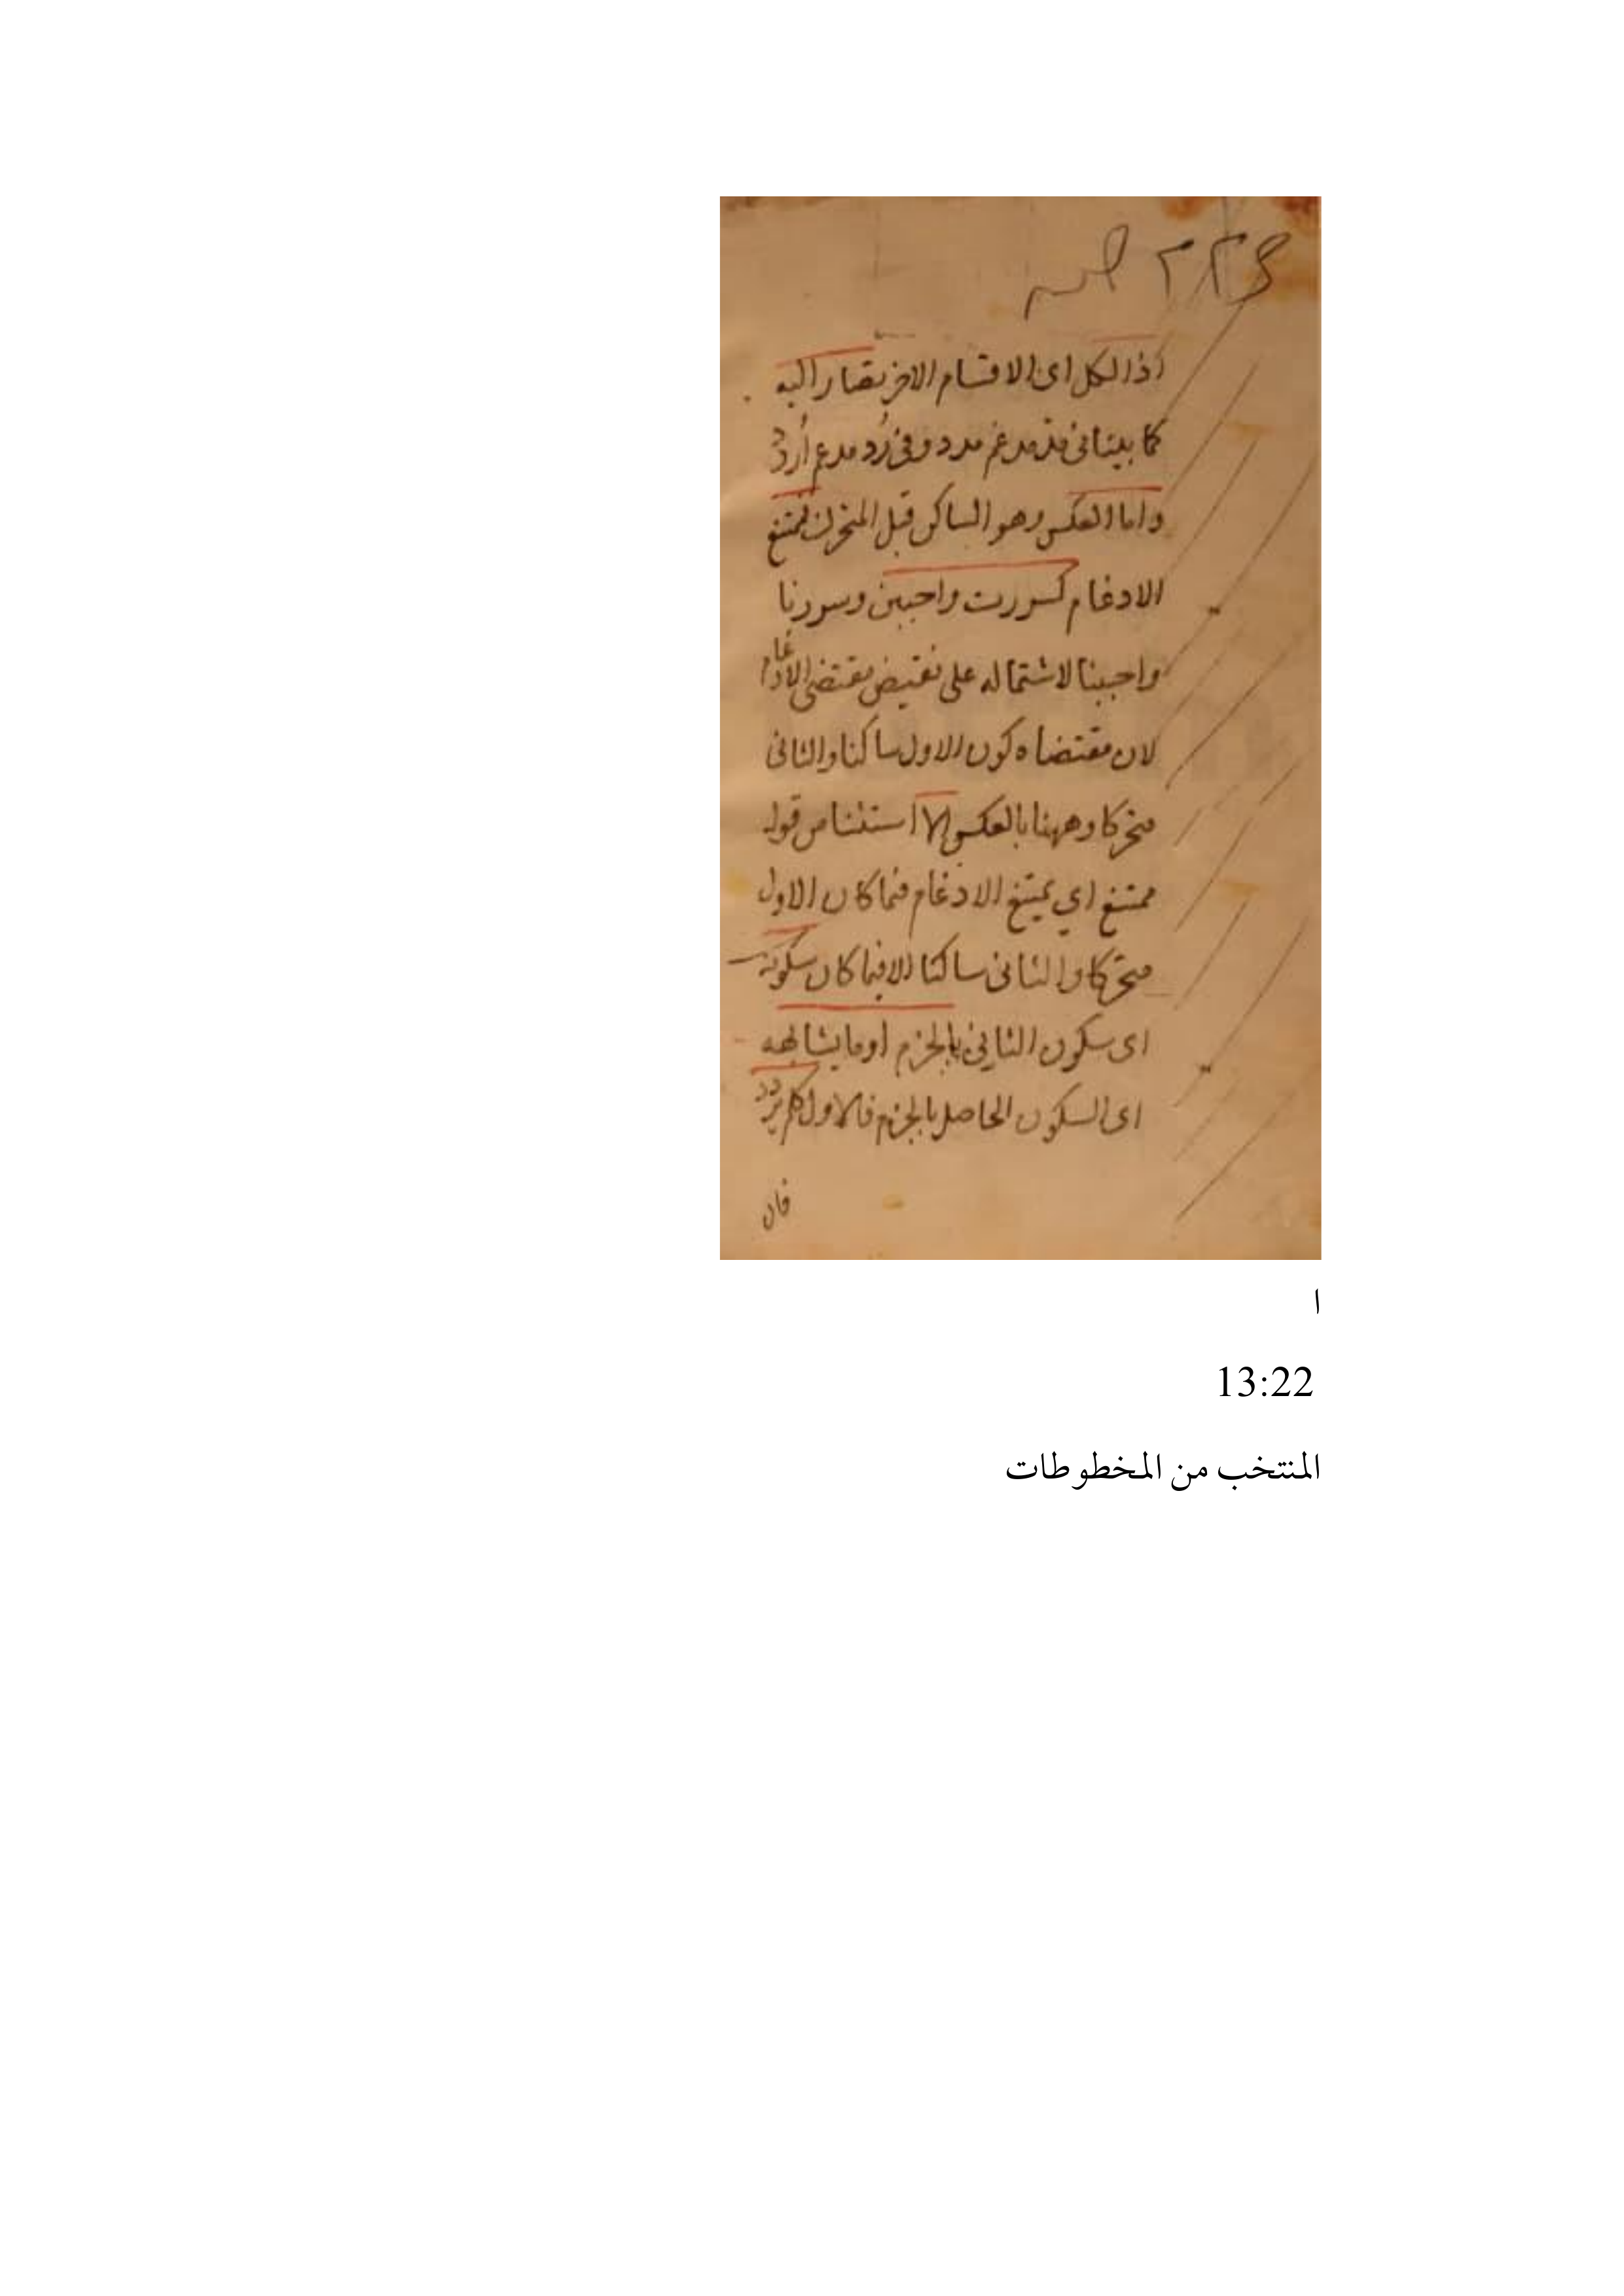 اذ الكل اى الاقسام الاخر يصار اليه
كما بينا فى مدغم مدد وفى رُد مدغم أردد
واما العكس وهو الساكن قبل المتحرك فممتنع
الادغام كسورت واحببن وسورنا
واحببنا لاشتماله على نقيض مقتضى الادغام
لان مقتضاه كون الاول ساكنا والثانى
متحركا وههنا بالعكس الا استثنا من قوله
ممتنع اي يمتنع الادغام فيما كان الاول
متحركا والثانى ساكنا الا فيما كان سكونه
اى سكون الثانى بالجزم او ما يشابهه
اى السكون الحاصل بالجزم فالاول كلم يردد
فان
ا
13:22
المنتخب من المخطوطات